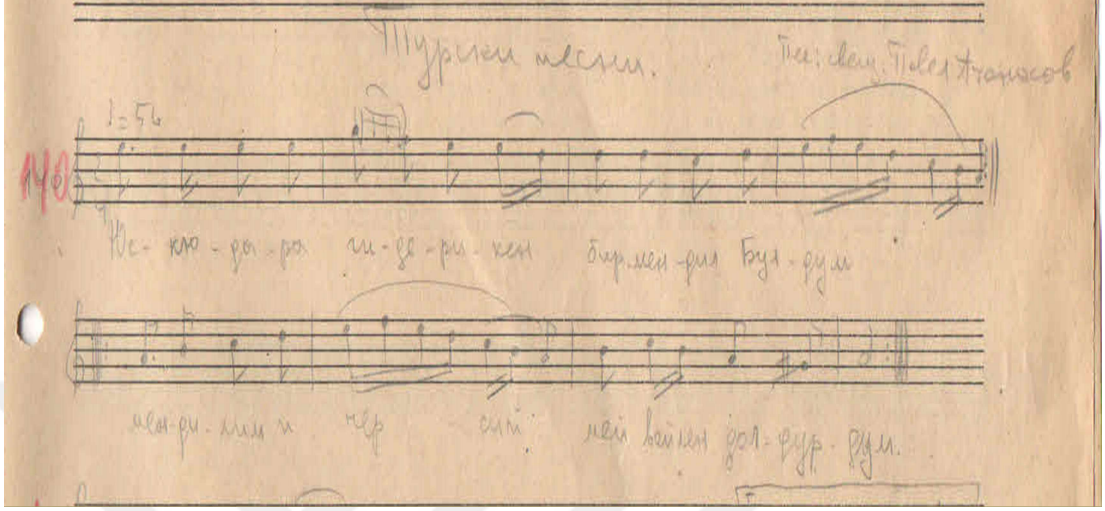 Турски песни.
Пее: свещ. Павел Атанасов
♩=56
140
Юс-кю-да-ра ги-де-ри-кен бир мен-дил Бул-дум
мен-ди-лим и чер сине лей дол-дур-дум.